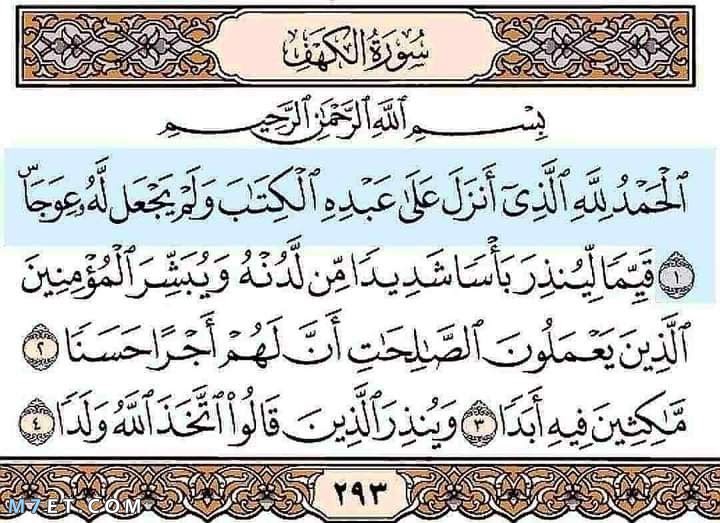 سُورَةُ الكَهْفِ
بِسْمِ ٱللَّهِ ٱلرَّحْمَٰنِ ٱلرَّحِيمِ
ٱلْحَمْدُ لِلَّهِ ٱلَّذِىٓ أَنزَلَ عَلَىٰ عَبْدِهِ ٱلْكِتَٰبَ وَلَمْ يَجْعَل لَّهُۥ عِوَجَاۜ
١ قَيِّمًا لِّيُنذِرَ بَأْسًا شَدِيدًا مِّن لَّدُنْهُ وَيُبَشِّرَ ٱلْمُؤْمِنِينَ
ٱلَّذِينَ يَعْمَلُونَ ٱلصَّٰلِحَٰتِ أَنَّ لَهُمْ أَجْرًا حَسَنًا ٢
مَّٰكِثِينَ فِيهِ أَبَدًا ٣ وَيُنذِرَ ٱلَّذِينَ قَالُوا۟ ٱتَّخَذَ ٱللَّهُ وَلَدًا ٤
٢٩٣
M7ET.COM